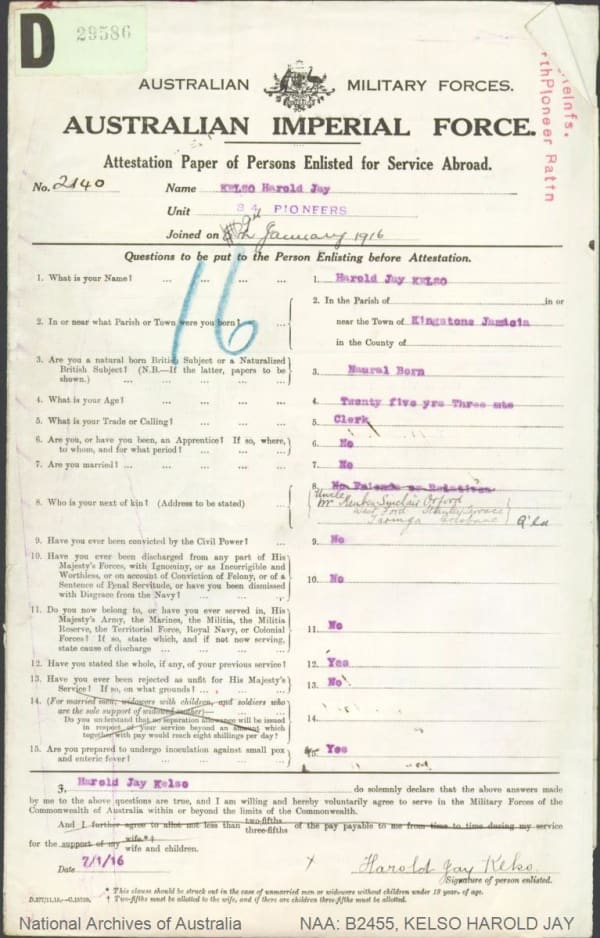 D 29586
rthPioneer Battn
AUSTRALIAN MILITARY FORCES.
AUSTRALIAN IMPERIAL FORCE.
Attestation Paper of Persons Enlisted for Service Abroad.
No. 2140 Name KELSO Harold Jay
Unit 34 PIONEERS
Joined on January 1916
Questions to be put to the Person Enlisting before Attestation.
16
1. What is your Name? ... ... ... ... 1. Harold Jay KELSO
2. In the Parish of in or
2. In or near what Parish or Town were you born? ... near the Town of Kingstone Jamicia
in the County of
3. Are you a natural born British Subject or a Naturalized
British Subject? (N.B.—If the latter, papers to be
shown.) ... ... ... ... ... 3. Naural Born
4. What is your Age? ... ... ... ... 4. Twenty five yrs Three mts
5. What is your Trade or Calling? ... ... ... 5. Clerk
6. Are you, or have you been, an Apprentice? If so, where,
to whom, and for what period? ... ... ... 6. No
7. Are you married? ... ... ... ... ... 7. No
8. No Friends or Relatives
Uncle
8. Who is your next of kin? (Address to be stated) ... Mr Sinclair Orford
Taringa Brisbane Q'ld
9. Have you ever been convicted by the Civil Power? ... 9. No
10. Have you ever been discharged from any part of His
Majesty's Forces, with Ignominy, or as Incorrigible and
Worthless, or on account of Conviction of Felony, or of a
Sentence of Penal Servitude, or have you been dismissed
with Disgrace from the Navy? ... ... ... 10. No
11. Do you now belong to, or have you ever served in, His
Majesty's Army, the Marines, the Militia, the Militia
Reserve, the Territorial Force, Royal Navy, or Colonial
Forces? If so, state which, and if not now serving,
state cause of discharge ... ... ... ... 11. No
12. Have you stated the whole, if any, of your previous service? 12. Yes
13. Have you ever been rejected as unfit for His Majesty's
Service? If so, on what grounds? ... ... ... 13. No
14. (For married men, widowers with children, and soldiers who
are the sole support of widowed mother)—
Do you understand that no separation allowance will be issued
in respect of your service beyond an amount which
together with pay would reach eight shillings per day? 14.
15. Are you prepared to undergo inoculation against small pox
and enteric fever? ... ... ... ... 15. Yes
I, Harold Jay Kelso do solemnly declare that the above answers made
by me to the above questions are true, and I am willing and hereby voluntarily agree to serve in the Military Forces of the
Commonwealth of Australia within or beyond the limits of the Commonwealth.
And I further agree to allot not less than two-fifths three-fifths of the pay payable to me from time to time during my service
for the support of my wife.*† wife and children.
Date 7/1/16 Harold Jay Kelso.
Signature of person enlisted.
* This clause should be struck out in the case of unmarried men or widowers without children under 18 years of age.
† Two-fifths must be allotted to the wife, and if there are children three-fifths must be allotted.
National Archives of Australia NAA: B2455, KELSO HAROLD JAY